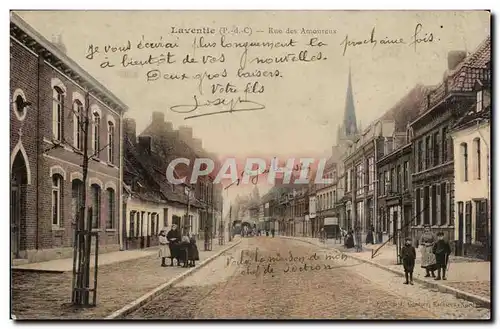 Laventie (P.-d.-C) — Rue des Amoureux
je vous écrirai plus longuement la prochaine fois.
à bientôt de vos nouvelles.
Deux gros baisers.
Votre fils
Joseph
CPARAMA.COM
Voilà la maison de mon